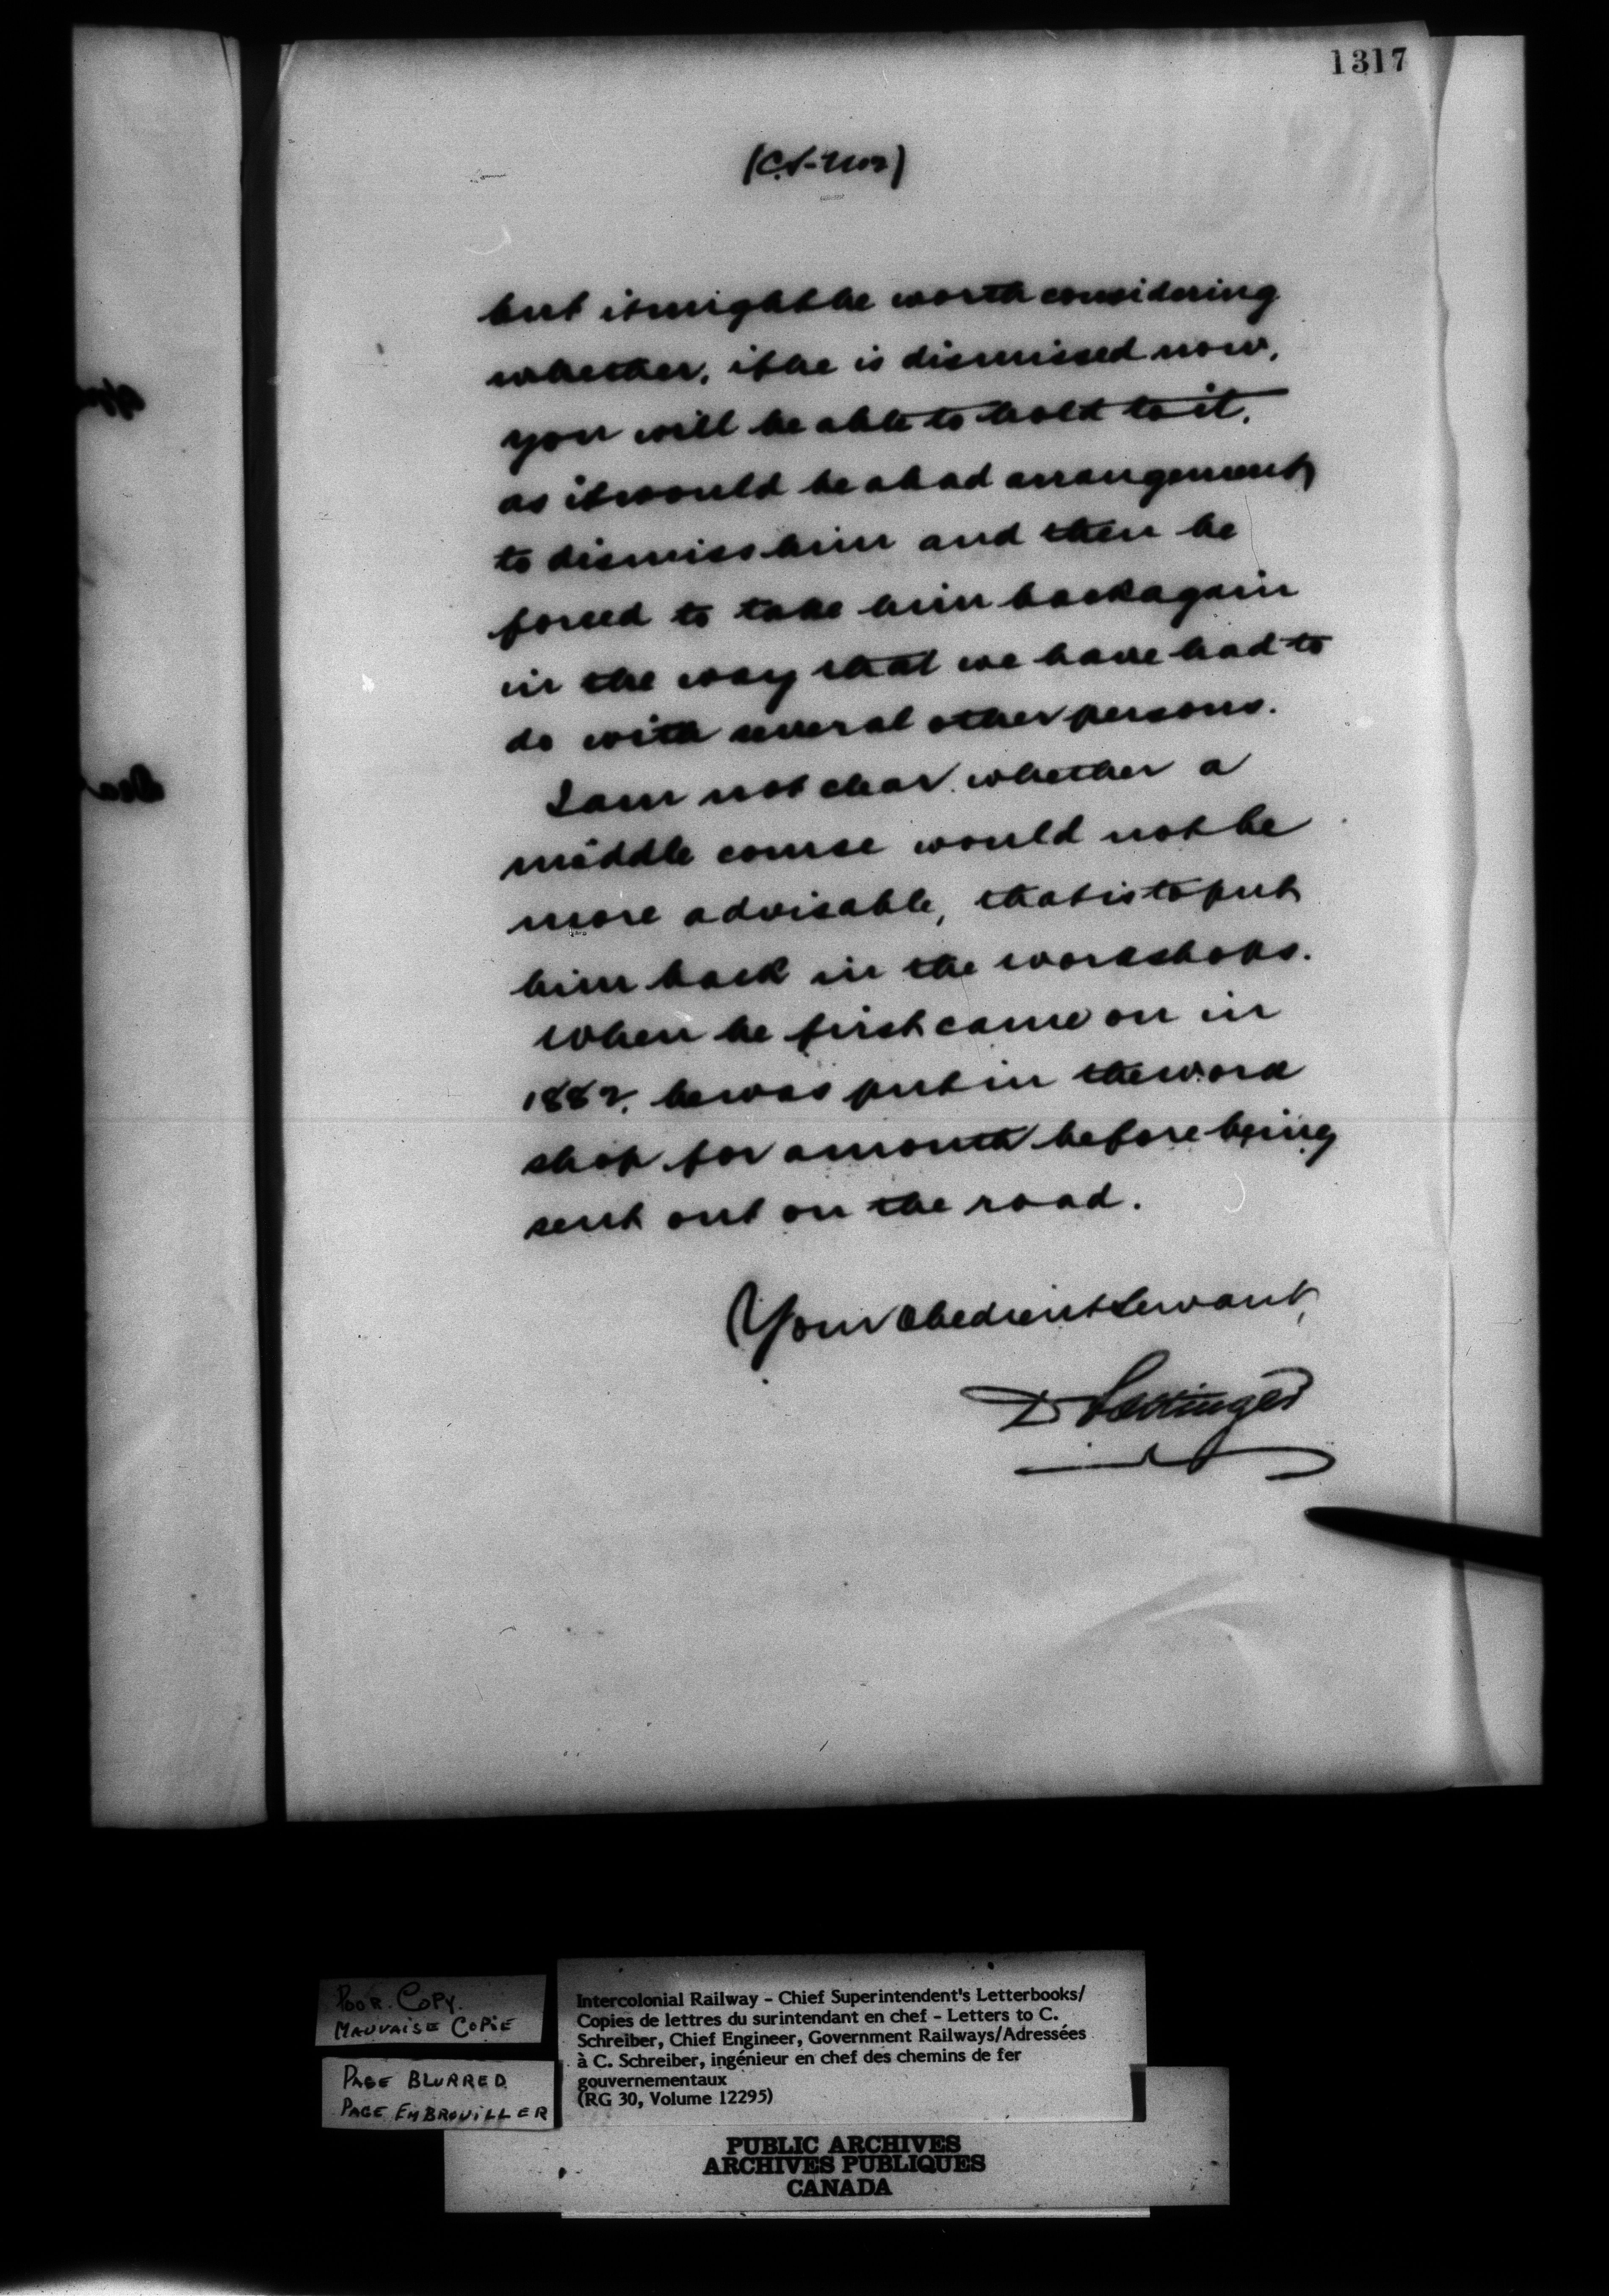 1317
(C.S-two)
but it might be worth considering
whether, if he is dismissed now,
you will be able to hold to it,
as it would be a bad arrangement
to dismiss him and then be
forced to take him back again
in the way that we have had to
do with several other persons.
I am not clear whether a
middle course would not be
more advisable, that is to put
him back in the workshops.
When he first came on in
1882, he was put in the work
shop for a month before being
sent out on the road.
Your Obedient Servant,
D Pottinger
POOR COPY.
MAUVAISE COPIE
PAGE BLURRED
PAGE EMBROUILLER
Intercolonial Railway - Chief Superintendent's Letterbooks/
Copies de lettres du surintendant en chef - Letters to C.
Schreiber, Chief Engineer, Government Railways/Adressées
à C. Schreiber, ingénieur en chef des chemins de fer
gouvernementaux
(RG 30, Volume 12295)
PUBLIC ARCHIVES
ARCHIVES PUBLIQUES
CANADA